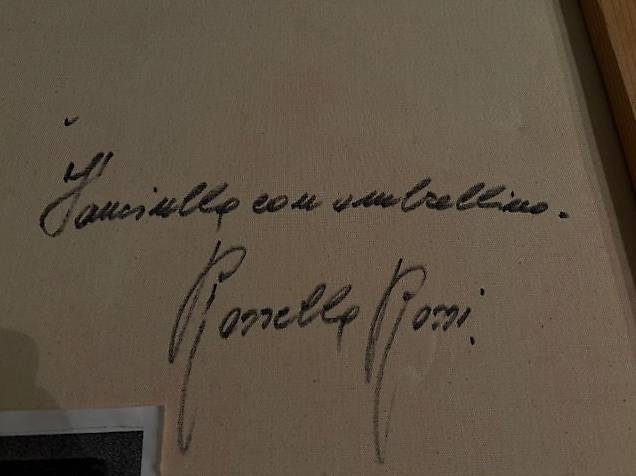 Fanciulla con ombrellino.
Rossella Rossi.